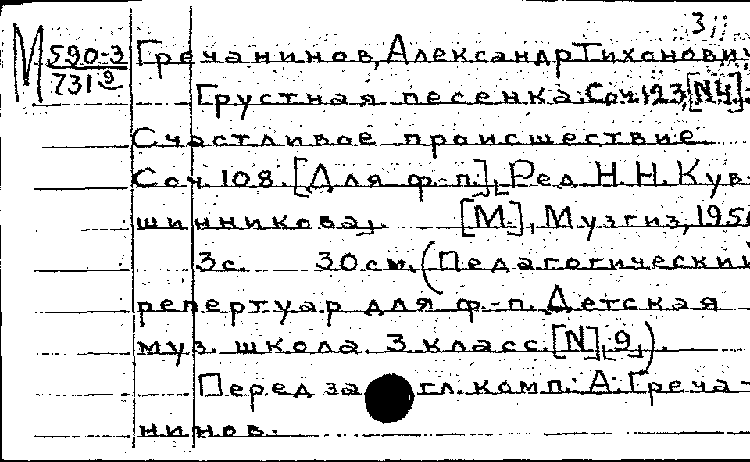 3
М 590-3 Гречанинов, Александр Тихонович
731 9 Грустная песенка. Соч. 123, [N4].
Счастливое происшествие.
Соч. 108. [Для ф.-п.], Ред. Н.Н. Кув-
шинникова,. [М.], Музгиз, 195
3с. 30 см. (Педагогический
репертуар для ф.-п. Детская
муз. школа. 3 класс. [N], 9,).
Перед за гл. комп.: А. Греча-
нинов.